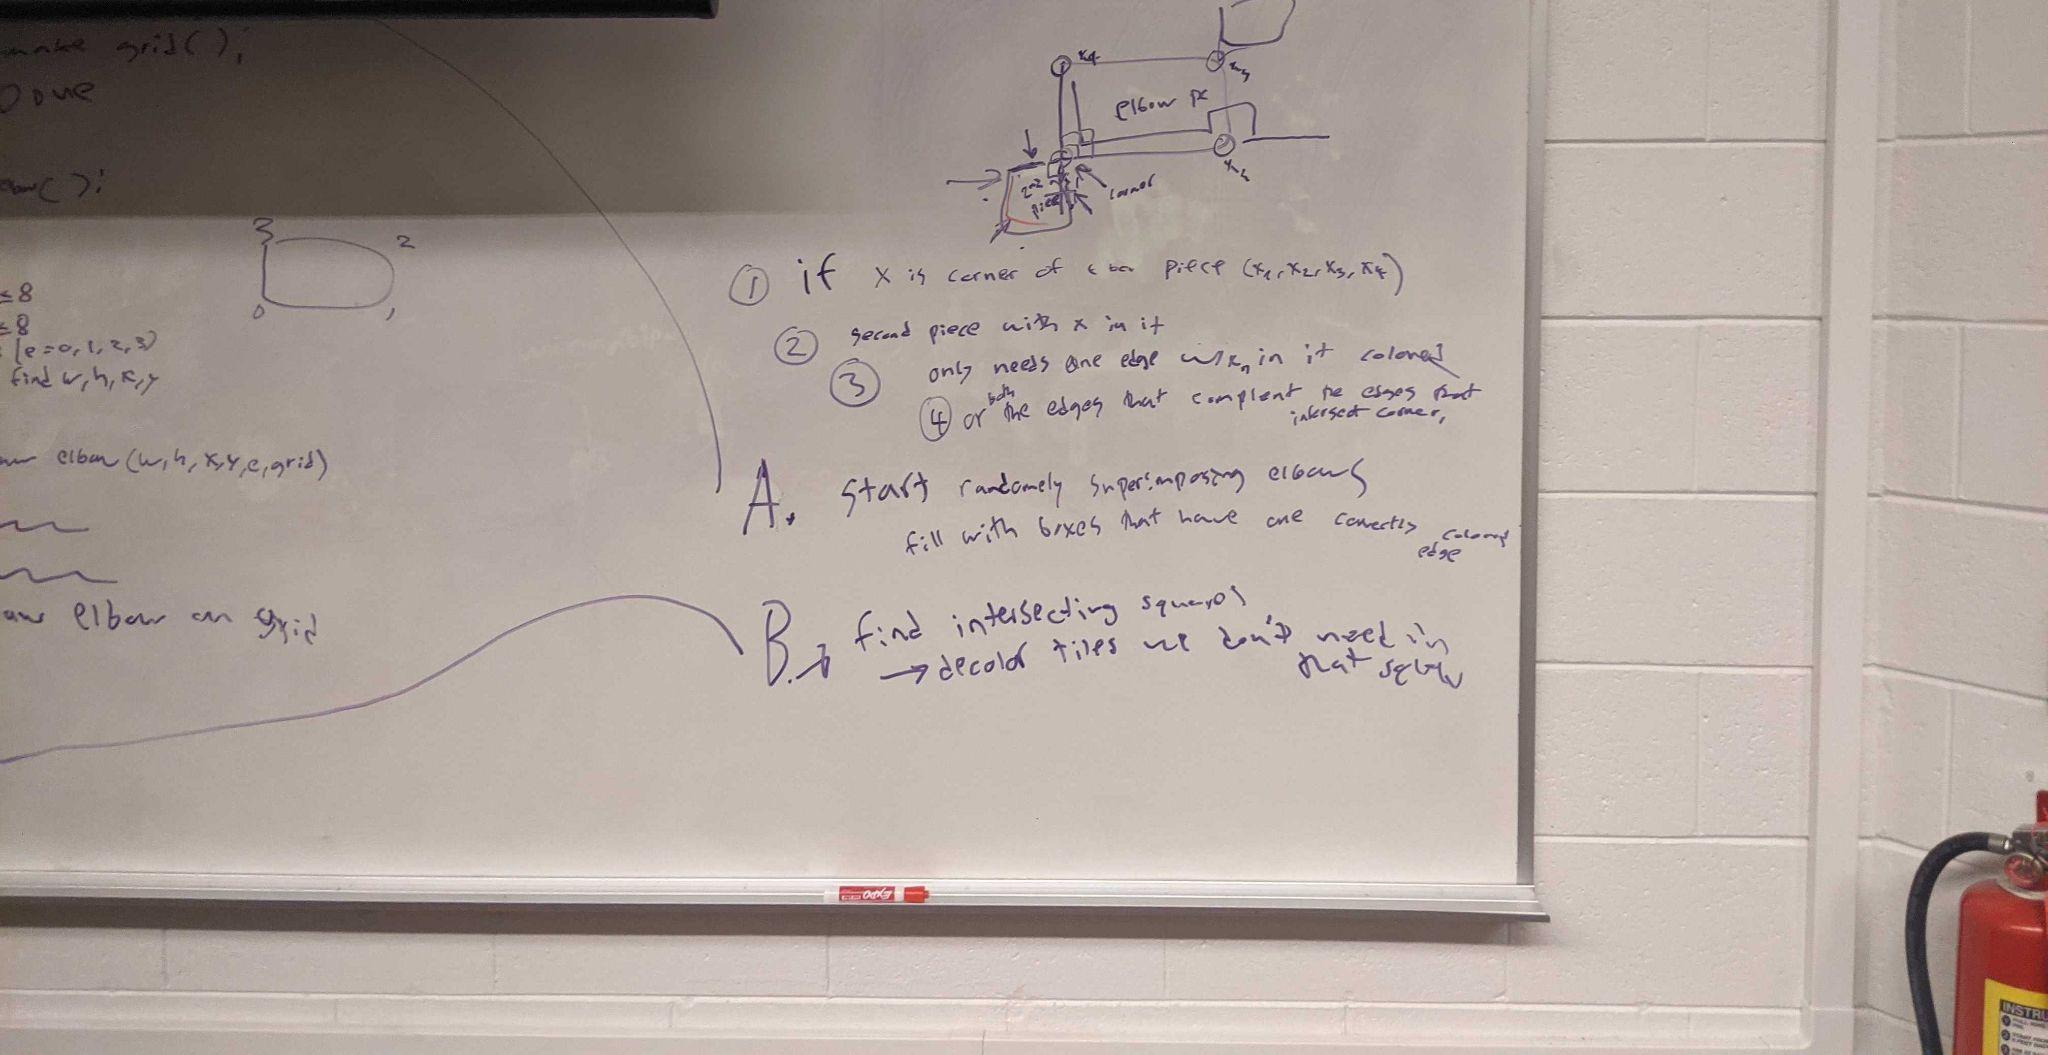 make grid();
Done
():
3
2
0
1
≤8
≤8
(e=0,1,2,3)
find w,h,x,y
elbow(w,h,x,y,e,grid)
elbow on grid
x4
x3
elbow pc
x2
2nd
piece
corner
① if x is corner of piece (x1,x2,x3,x4)
② second piece with x in it
③ only needs one edge w/xn in it colored
④ or both the edges that complent the edges that
intersect corner,
A. start randomely superimposing elbows
fill with boxes that have one correctly colored
edge
B. → find intersecting squares
→ decolor tiles we don't need in
that square
EXPO
INSTRU